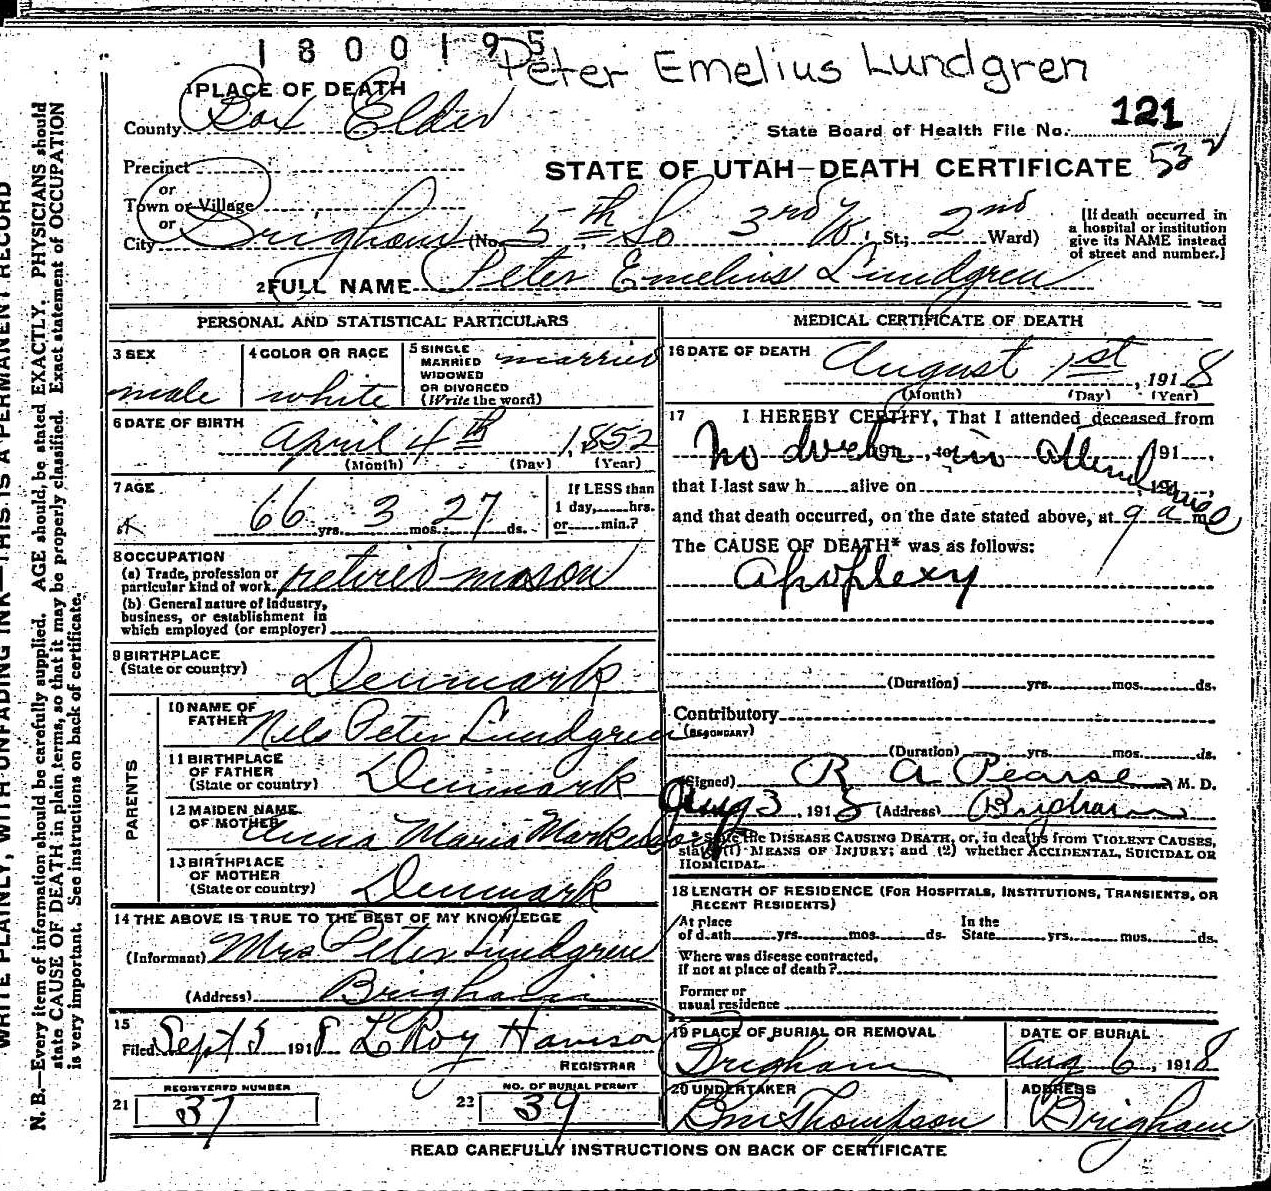 1800195
Peter Emelius Lundgren
1 PLACE OF DEATH
County Box Elder
121
State Board of Health File No.
Precinct
STATE OF UTAH—DEATH CERTIFICATE 532
or
Town or Village
or
City Brigham (No. 5th So 3rd W. St.; 2nd Ward)
[If death occurred in a hospital or institution give its NAME instead of street and number.]
2 FULL NAME Peter Emelius Lundgren
PERSONAL AND STATISTICAL PARTICULARS
3 SEX
male
4 COLOR OR RACE
white
5 SINGLE
MARRIED
WIDOWED
OR DIVORCED
(Write the word)
married
6 DATE OF BIRTH
April 4th, 1852
(Month) (Day) (Year)
7 AGE
66 yrs. 3 mos. 27 ds.
If LESS than
1 day, hrs.
or min.?
8 OCCUPATION
(a) Trade, profession or
particular kind of work retired mason
(b) General nature of industry,
business, or establishment in
which employed (or employer)
9 BIRTHPLACE
(State or country)
Denmark
PARENTS
10 NAME OF
FATHER Nels Peter Lundgren
11 BIRTHPLACE
OF FATHER
(State or country)
Denmark
12 MAIDEN NAME
OF MOTHER Anna Maria
13 BIRTHPLACE
OF MOTHER
(State or country)
Denmark
14 THE ABOVE IS TRUE TO THE BEST OF MY KNOWLEDGE
(Informant) Mrs Peter Lundgren
(Address) Brigham
15
Filed Sept 5 1918 L Roy Harrison
REGISTRAR
REGISTERED NUMBER
21 37
NO. OF BURIAL PERMIT
22 39
MEDICAL CERTIFICATE OF DEATH
16 DATE OF DEATH
August 1st, 1918
(Month) (Day) (Year)
17 I HEREBY CERTIFY, That I attended deceased from
No doctor in attendance 191
that I last saw h alive on 191
and that death occurred, on the date stated above, at 9 a m
The CAUSE OF DEATH* was as follows:
Apoplexy
(Duration) yrs. mos. ds.
Contributory
(SECONDARY)
(Duration) yrs. mos. ds.
(Signed) R A Pearse M. D.
Aug 3 1918 (Address) Brigham
* State the DISEASE CAUSING DEATH, or, in deaths from VIOLENT CAUSES,
state (1) MEANS OF INJURY; and (2) whether ACCIDENTAL, SUICIDAL OR
HOMICIDAL.
18 LENGTH OF RESIDENCE (FOR HOSPITALS, INSTITUTIONS, TRANSIENTS, OR
RECENT RESIDENTS)
At place
of death yrs. mos. ds.
In the
State yrs. mos. ds.
Where was disease contracted,
if not at place of death?
Former or
usual residence
19 PLACE OF BURIAL OR REMOVAL
Brigham
DATE OF BURIAL
Aug 6, 1918
20 UNDERTAKER
Thompson
ADDRESS
Brigham
READ CAREFULLY INSTRUCTIONS ON BACK OF CERTIFICATE
WRITE PLAINLY, WITH UNFADING INK—THIS IS A PERMANENT RECORD
N. B.—Every item of information should be carefully supplied. AGE should be stated EXACTLY. PHYSICIANS should
state CAUSE OF DEATH in plain terms, so that it may be properly classified. Exact statement of OCCUPATION
is very important. See instructions on back of certificate.